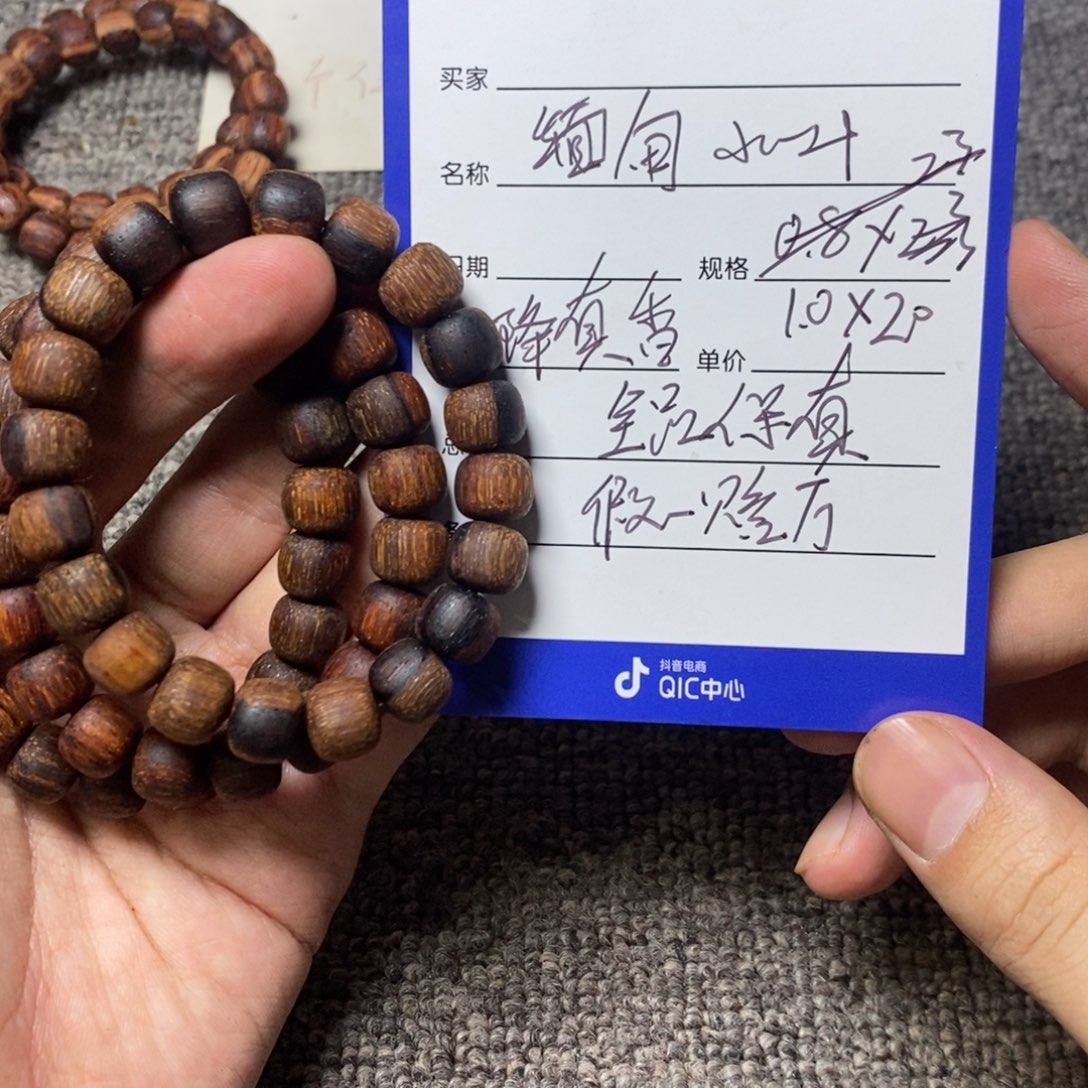 买家
名称 缅甸小叶
日期 规格
降真香 1.0×20
单价
全品保真
假一赔万
抖音电商
QIC中心